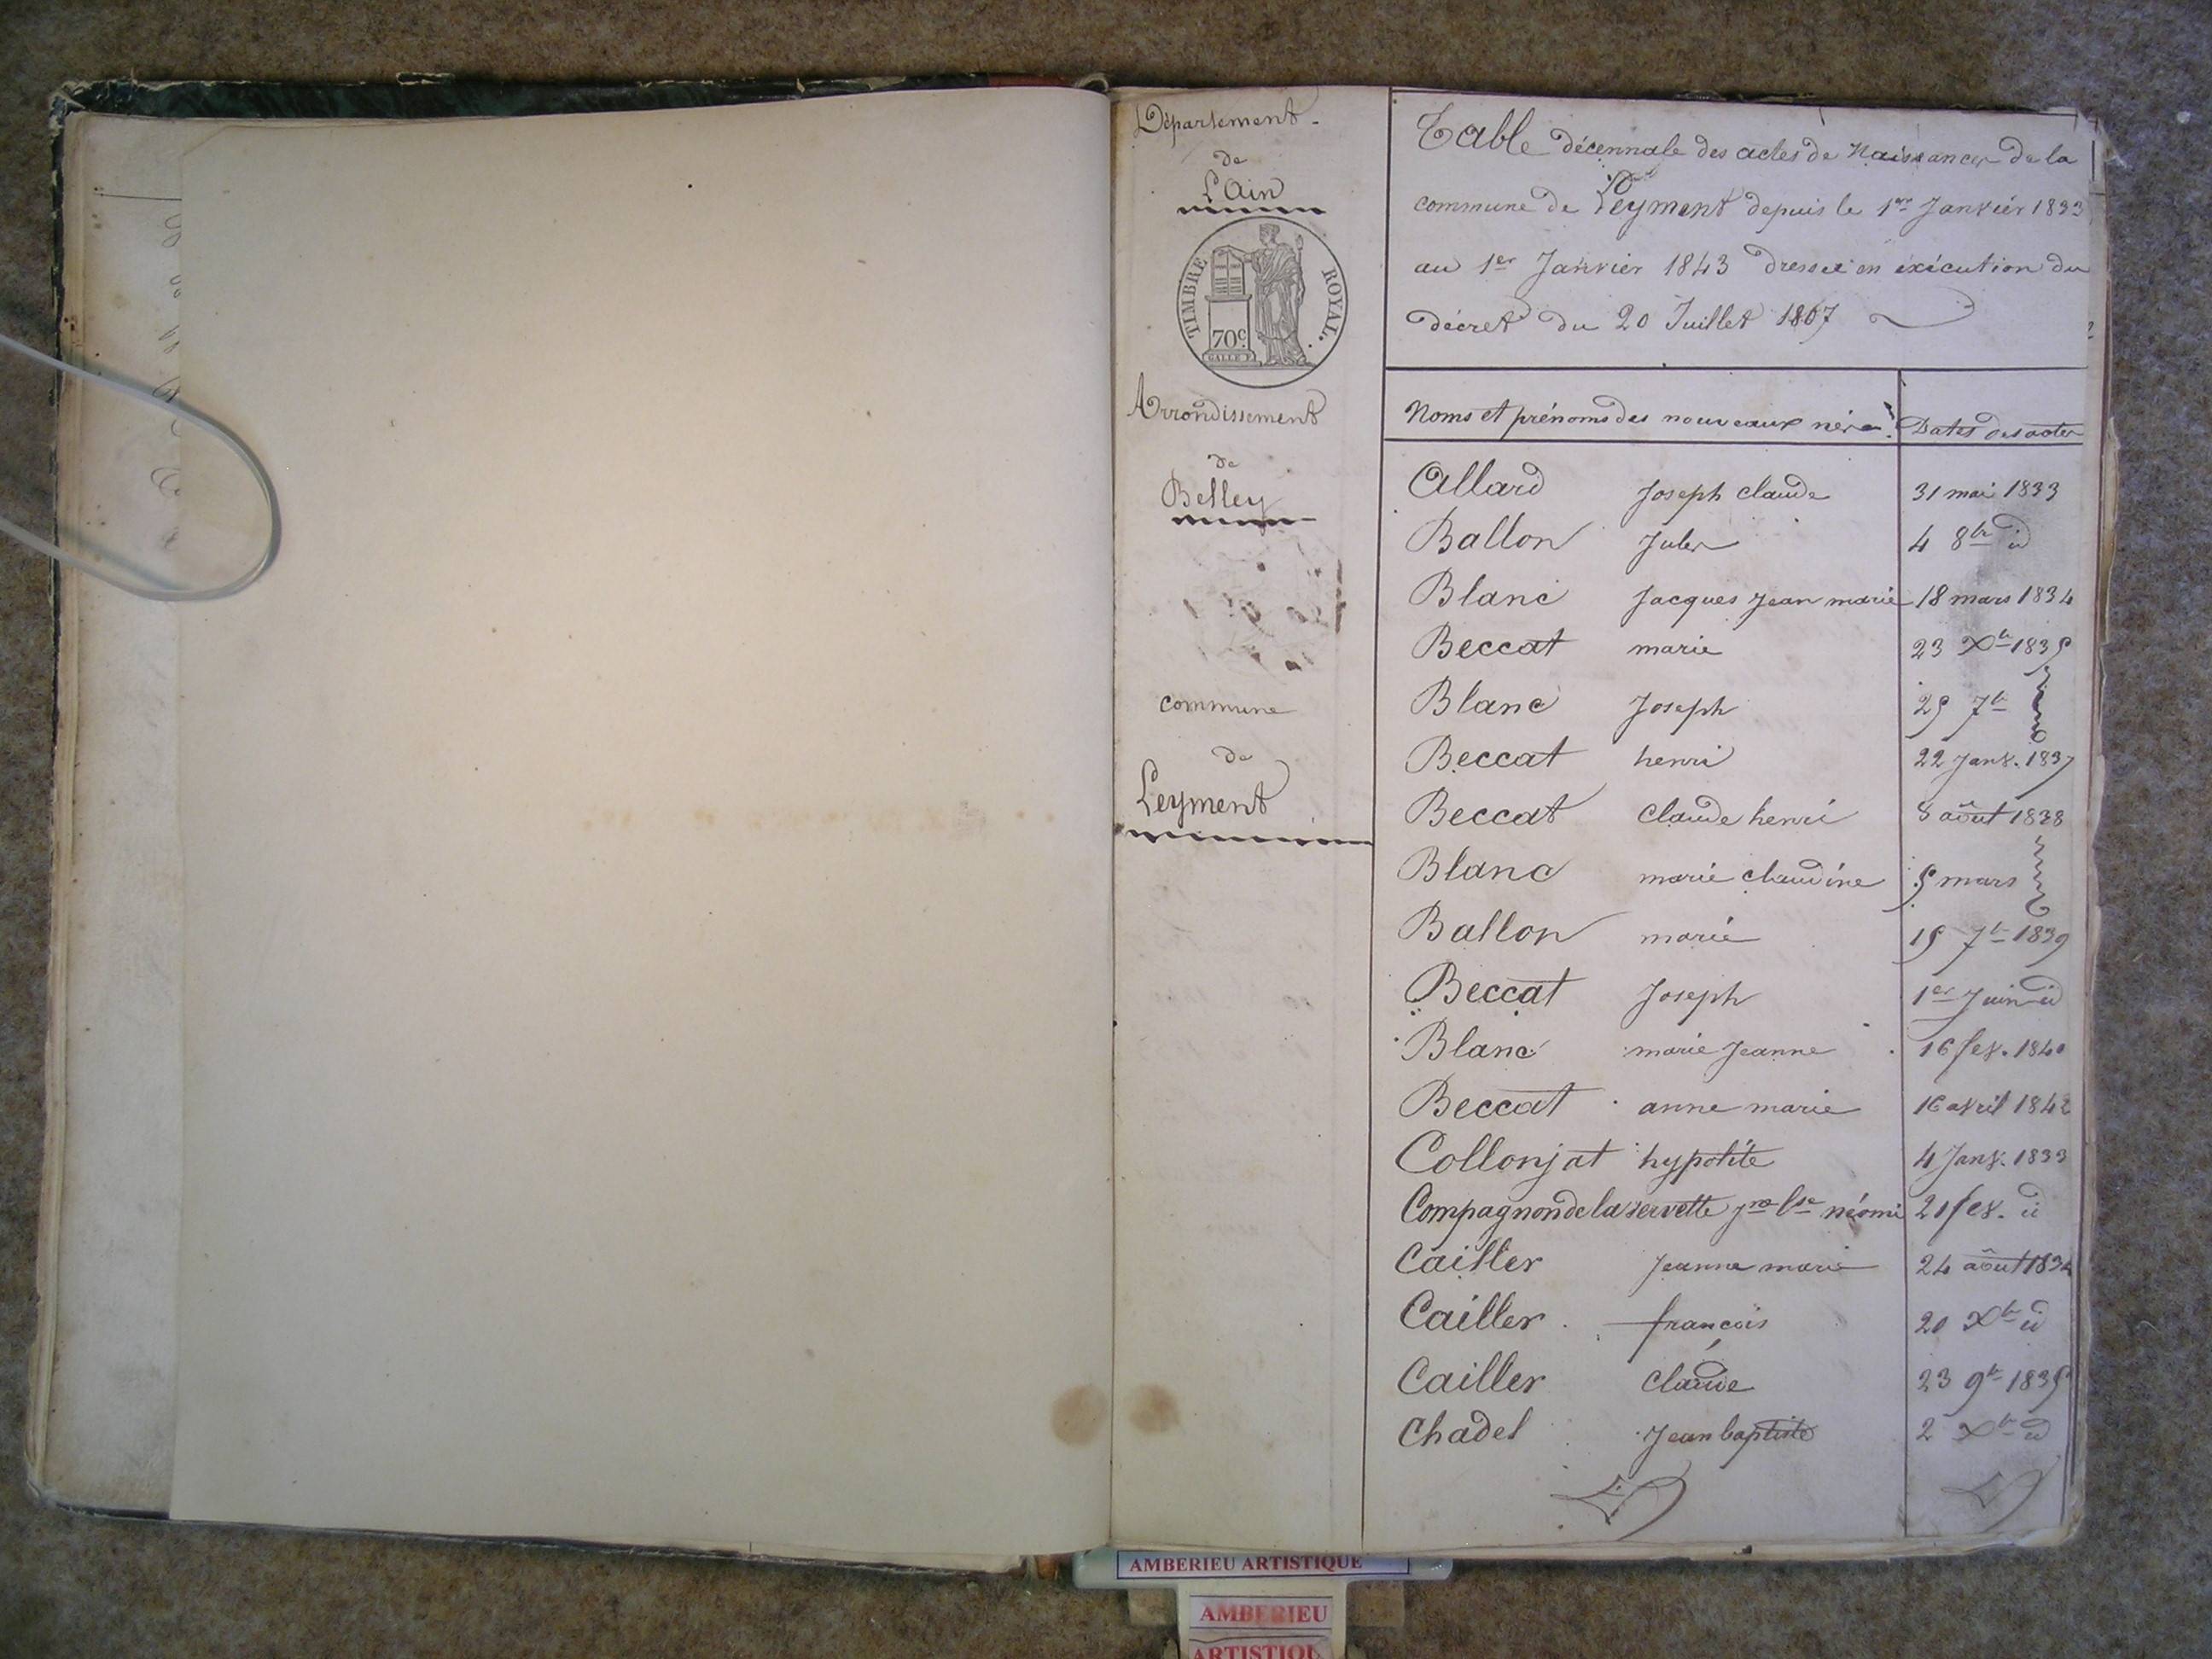 Département
de
L'Ain
TIMBRE ROYAL.
70c.
GALLE F.
Arrondissement
de
Belley
commune
de
Leyment
Table décennale des actes de Naissances de la
commune de Leyment depuis le 1er Janvier 1833
au 1er Janvier 1843 dressée en éxécution du
décret du 20 Juillet 1807
Noms et prénoms des nouveaux nés Dates des actes
Allard Joseph claude 31 mai 1833
Ballon Jules 4 8bre id
Blanc Jacques Jean marie 18 mars 1834
Beccat marie 23 Xbre 1835
Blanc Joseph 25 7bre
Beccat henri 22 Janv. 1837
Beccat Claude henri 8 août 1838
Blanc marie claudine 5 mars
Ballon marie 15 7bre 1839
Beccat Joseph 1er Juin id
Blanc marie Jeanne 16 fev. 1840
Beccat anne marie 16 avril 1842
Collonjat hypolite 4 Janv. 1833
Compagnon de la servette néomi 21 fev. id
Cailler Jeanne marie 24 août 1834
Cailler françois 20 Xbre id
Cailler Claude 23 9bre 1835
Chadel Jean baptiste 2 Xbre id
AMBERIEU ARTISTIQUE
AMBERIEU
ARTISTIQU